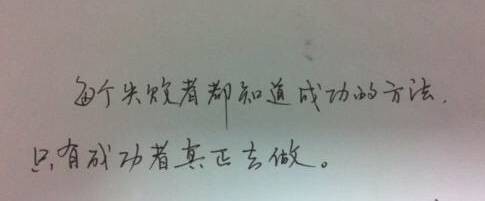 每个失败者都知道成功的方法,
只有成功者真正去做。